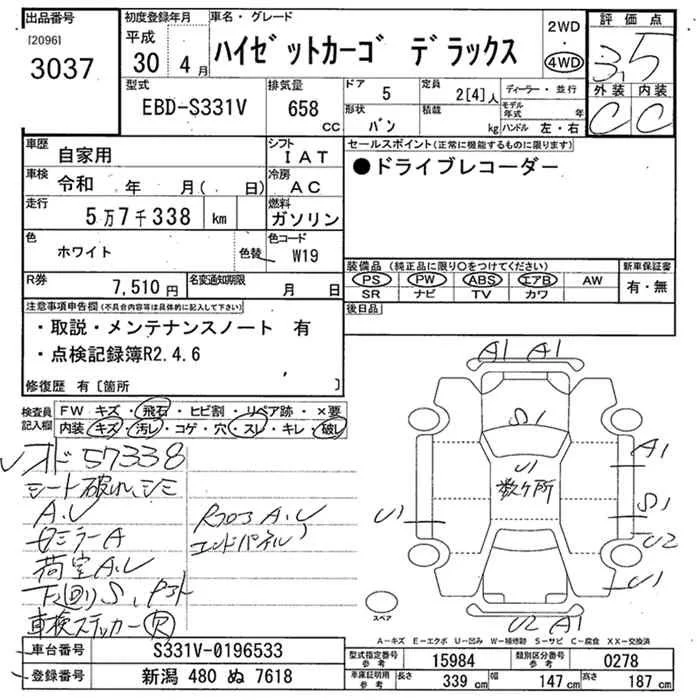 出品番号
[2096]
3037
初度登録年月
平成
30 4月
車名・グレード
ハイゼットカーゴ デラックス
2WD
・
4WD
評価点
3.5
外装 内装
C C
型式
EBD-S331V
排気量
658
CC
ドア
5
定員
2[4]人
形状
バン
積載
kg
ディーラー・並行
モデル年式 年
ハンドル 左・右
車歴
自家用
シフト
IAT
車検
令和 年 月( 日)
冷房
AC
走行
5万7千338 km
燃料
ガソリン
色
ホワイト
色替
色コード
W19
R券
7,510円
名変通知期限
月 日
セールスポイント(正常に機能するものに限ります)
●ドライブレコーダー
装備品 (純正品に限り〇をつけてください)
PS PW ABS エアB AW
SR ナビ TV カワ
新車保証書
有・無
後日品
注意事項申告欄(不具合内容等は具体的に記入して下さい)
・取説・メンテナンスノート 有
・点検記録簿R2.4.6
修復歴 有[箇所 ]
検査員記入欄
FW キズ・飛石・ヒビ割・リペア跡・×要
内装・キズ・汚レ・コゲ・穴・スレ・キレ・破レ
オド57338
シート破れ、シミ
A.U
荷室A.U
下廻りS、
車検ステッカー欠
A.U
エンドパネル
A1 A1
S1
U1
数ヶ所
A1
S1
U1
U2
U1
U2 A1
スペア
A-キズ E-エクボ U-凹み W-補修跡 S-サビ C-腐食 XX-交換済
車台番号
S331V-0196533
登録番号
新潟 480 ぬ 7618
型式指定番号
参考
15984
類別区分番号
参考
0278
車庫証明用
参考
長さ
339 cm
幅
147 cm
高さ
187 cm